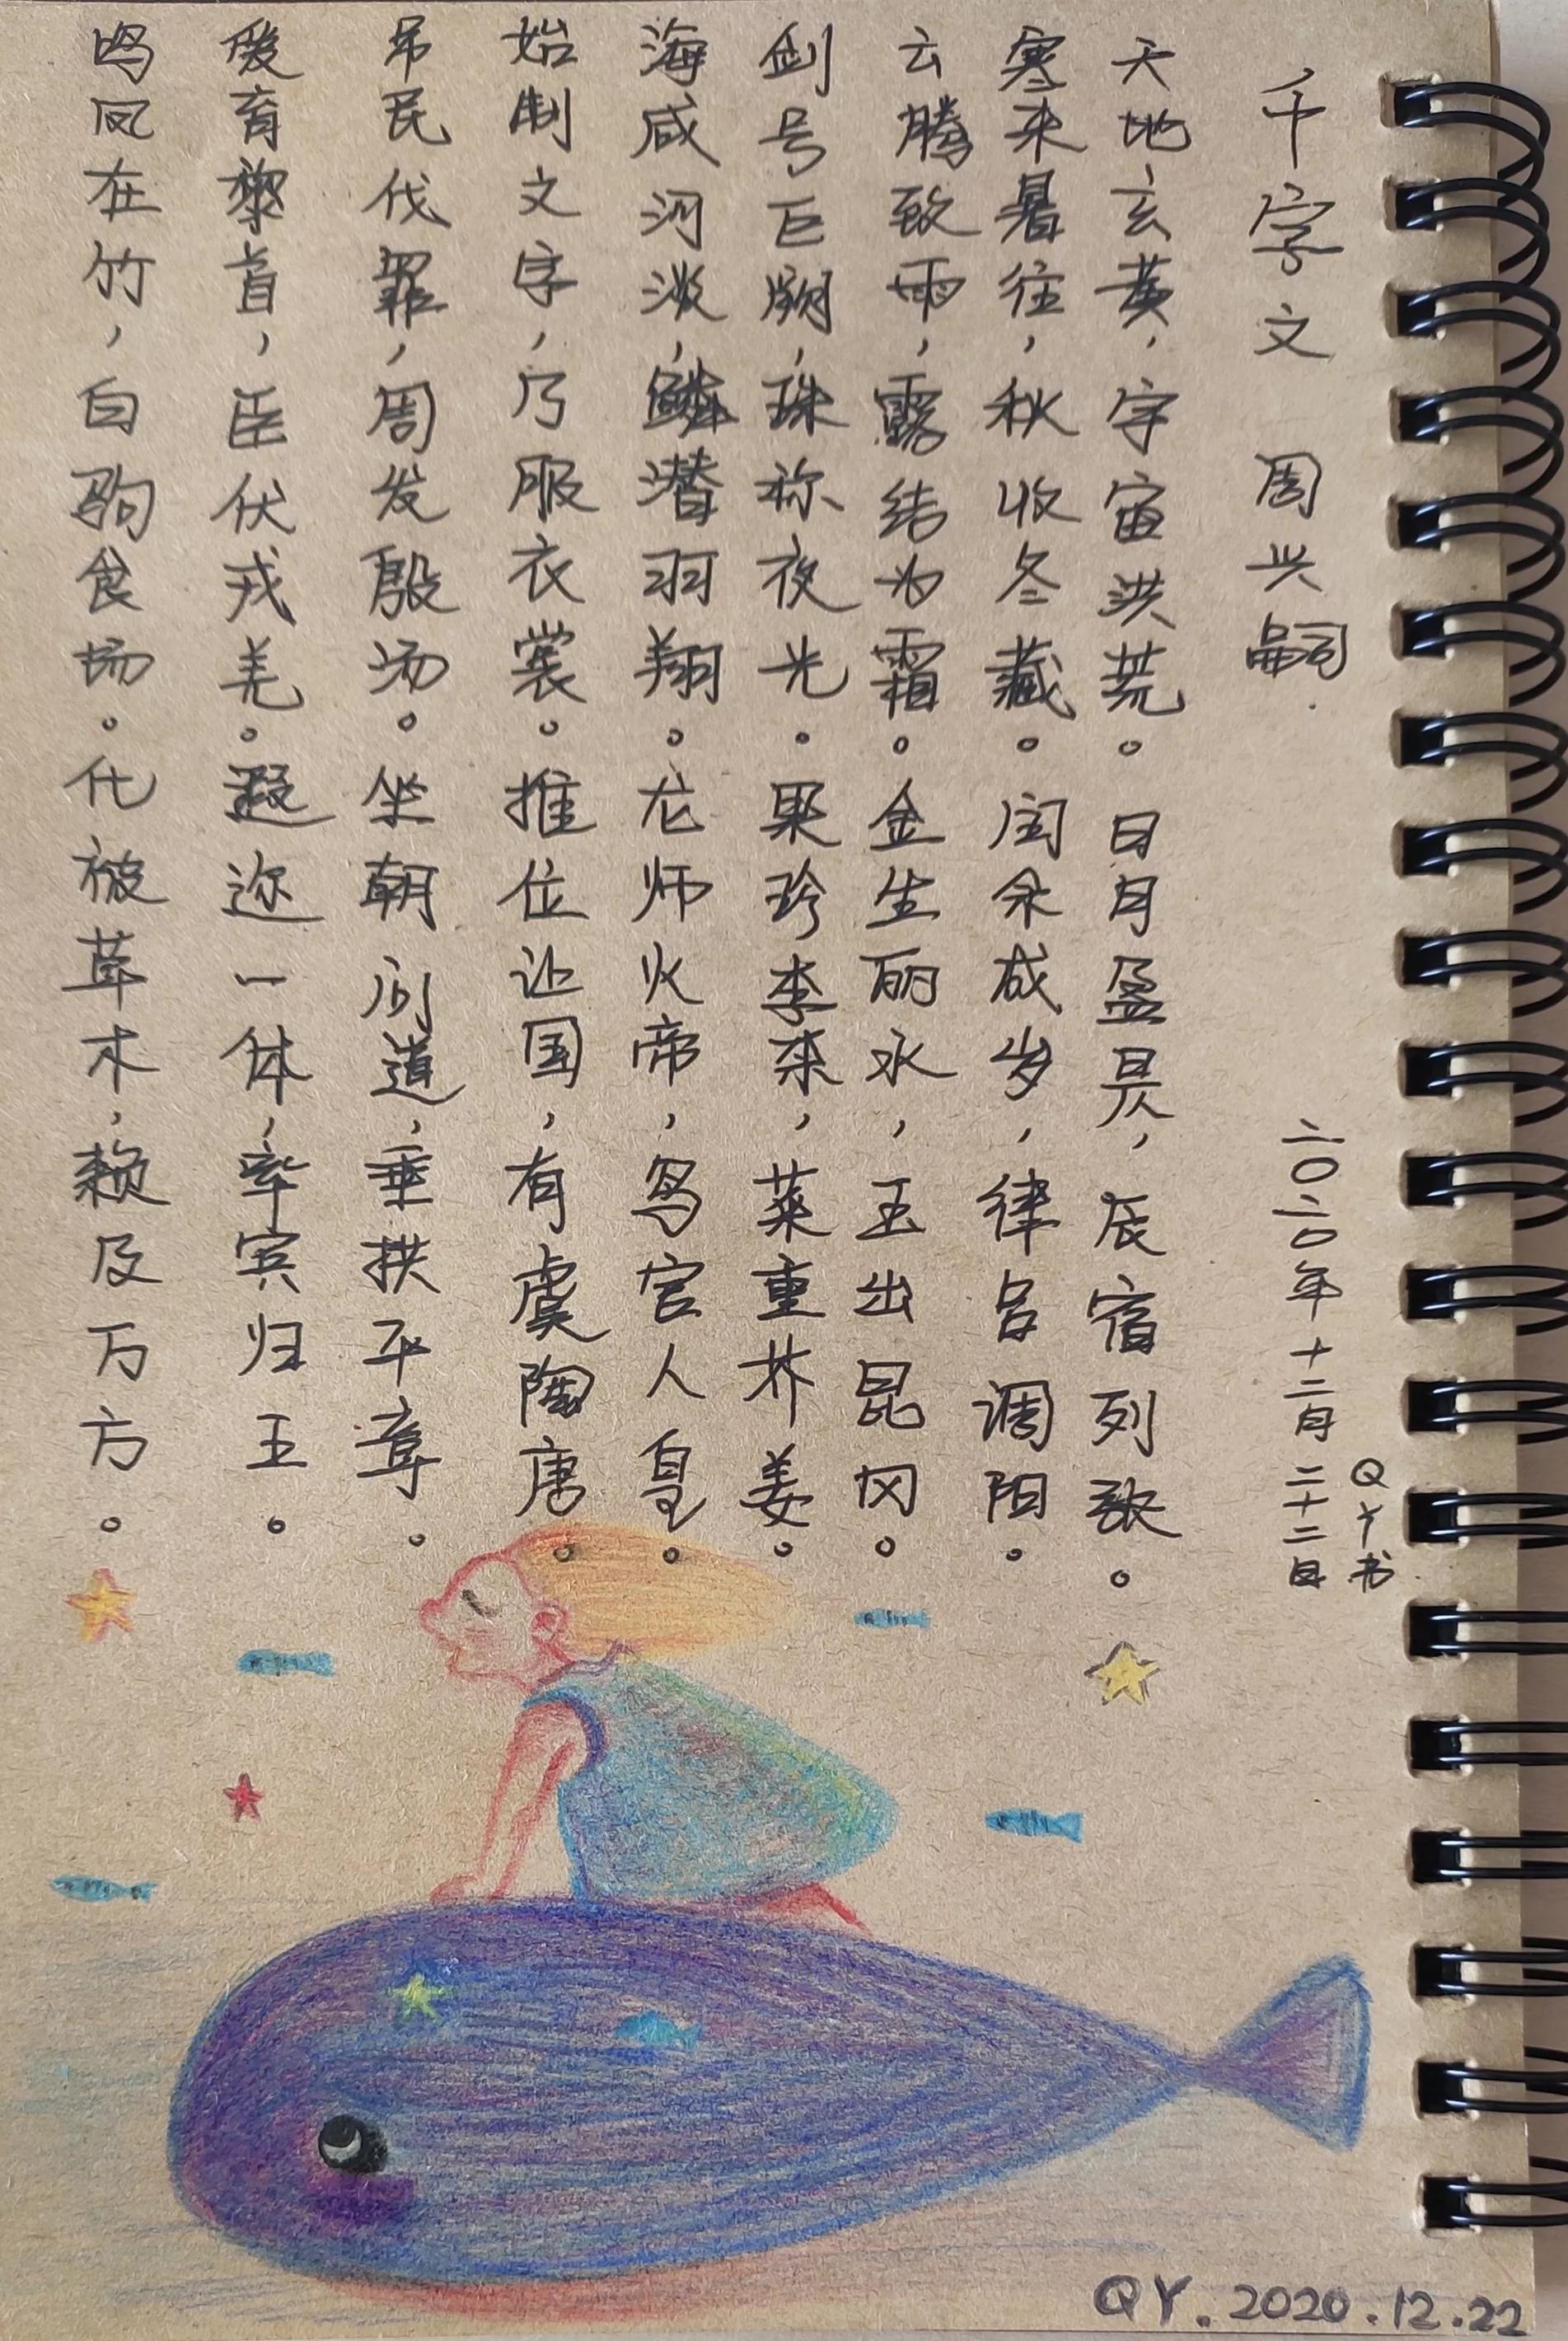 千字文 周兴嗣
二〇二〇年十二月二十二日
QY书
天地玄黄，宇宙洪荒。日月盈昃，辰宿列张。
寒来暑往，秋收冬藏。闰余成岁，律吕调阳。
云腾致雨，露结为霜。金生丽水，玉出昆冈。
剑号巨阙，珠称夜光。果珍李柰，菜重芥姜。
海咸河淡，鳞潜羽翔。龙师火帝，鸟官人皇。
始制文字，乃服衣裳。推位让国，有虞陶唐。
吊民伐罪，周发殷汤。坐朝问道，垂拱平章。
爱育黎首，臣伏戎羌。遐迩一体，率宾归王。
鸣凤在竹，白驹食场。化被草木，赖及万方。
QY. 2020.12.22